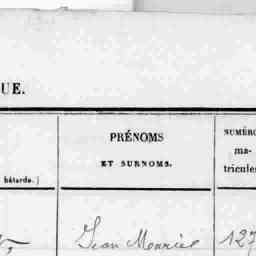 UE.
PRÉNOMS
ET SURNOMS.
NUMÉRO
ma-
tricules
bâtarde.)
Jean Maurice
127